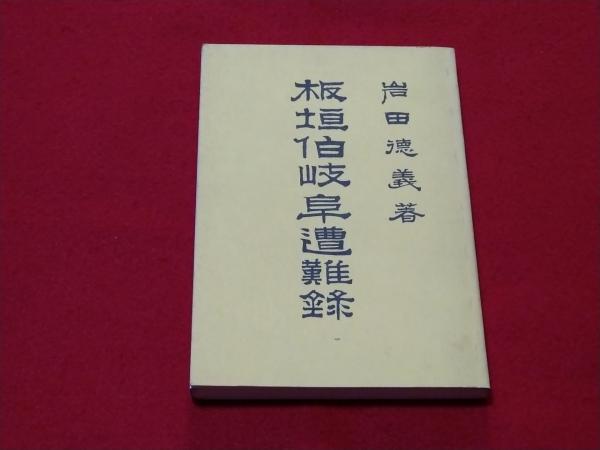 岩田德義著
板垣伯岐阜遭難錄